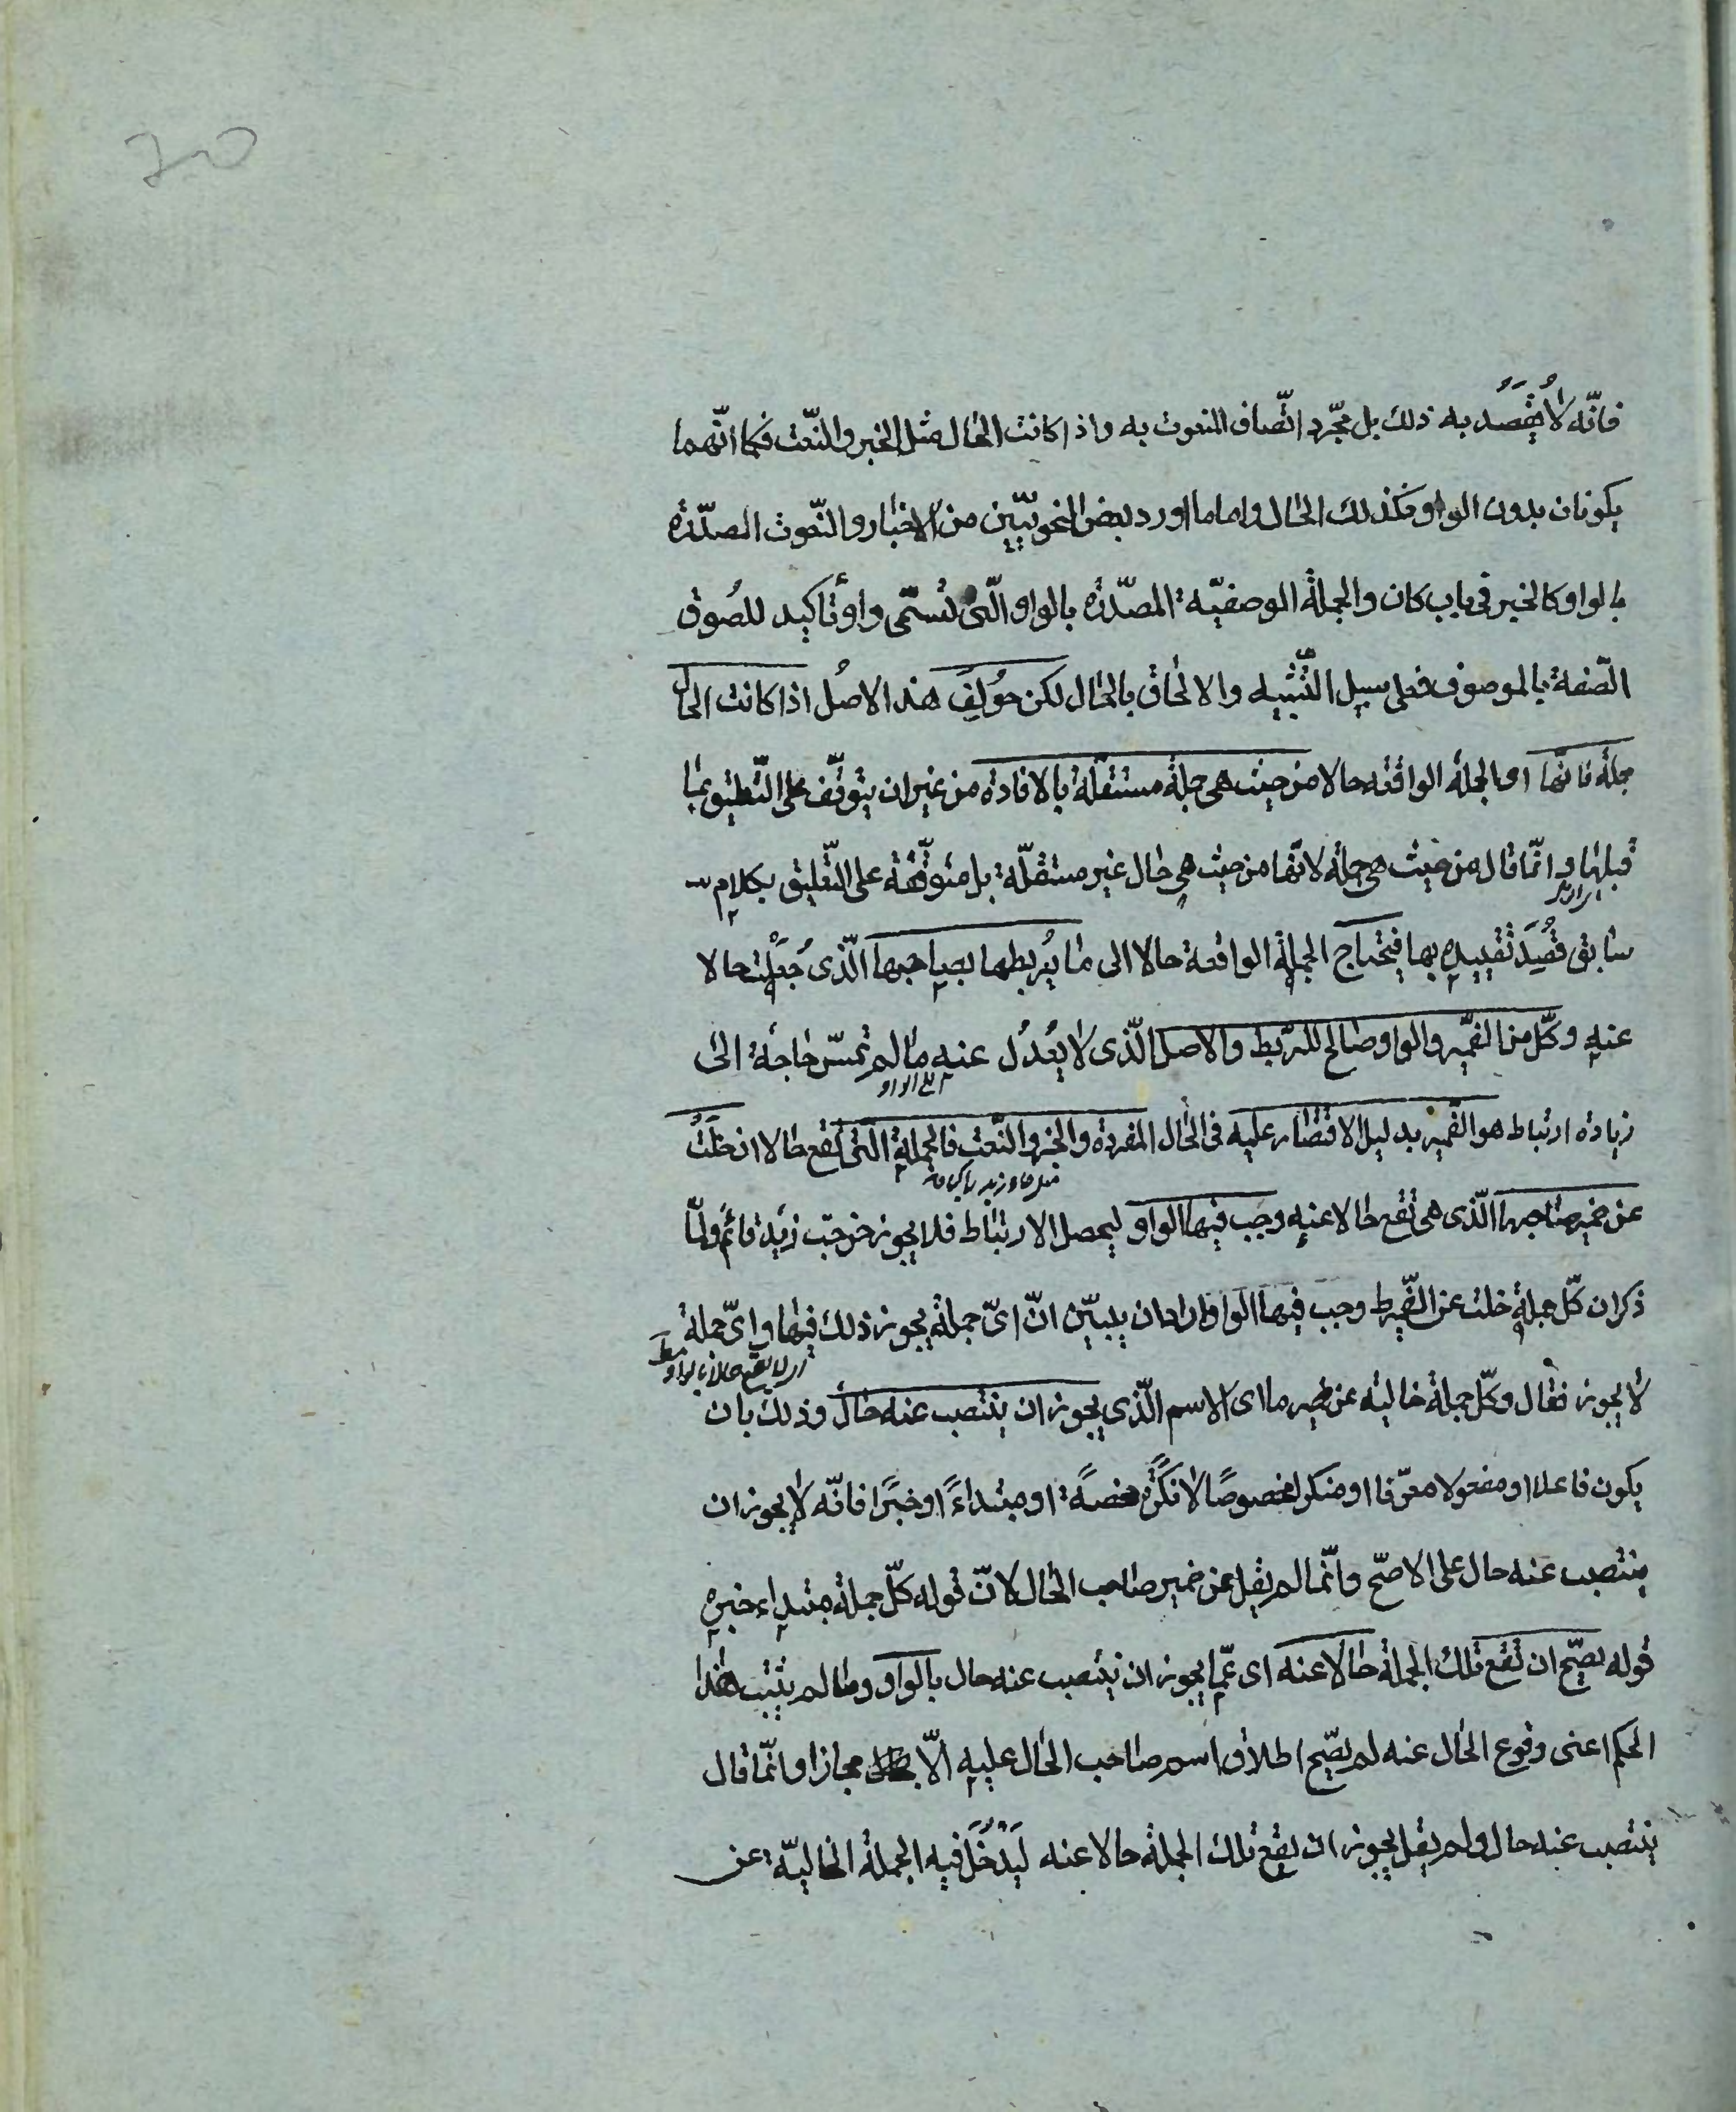 20
فانّه لا يُقصَدُ به ذلك بل مجّرد اتّصاف المنعوت به واذا كانت الحال مثل الخبر والنّعت فكما انّهما
يكونان بدون الواو فكذلك الحال واما ما اورد بعض النحويّين من الاخبار والنّعوت المصدّرة
بالواو كالخبر فى باب كان والجملة الوصفيّة المصدّرة بالواو الّتى تُسمّى واو تأكيد للصُوق
الصّفة بالموصوف فعلى سبيل التّشبيه والالحاق بالحال لكن خُولِفَ هذا الاصُل اذا كانت الحال
جملة فانّها اى الجملة الواقعه حالا من حيث هى جملة مستقلّة بالافادة من غير ان يتوقّف على التّعليق بما
قبلها وانّما قال من حيث هى جملة لانّها من حيث هى حال غير مستقلّة بل متوقّفة على التّعليق بكلام
سابق قُصِدَ تقييده بها فيحتاج الجملة الواقعة حالا الى ما يُربطها بصاحبها الّذى جُعِلْت حالا
عنه وكلّ من الضّمير والواو صالح للرّبط والاصل الّذى لا يُعدُل عنه ما لم تمسّ حاجة الى
زيادة ارتباط هو الضّمير بدليل الاقتصار عليه فى الحال المفردة والخبر والنّعت فالجملة الّتى تقع حالا ان خلَتْ
عن ضمير صاحبها الّذى هى تقع حالا عنه وجب فيها الواو ليحصل الارتباط فلا يجوز خرجت زيد قائم ولمّا
ذكر ان كلّ جملة خلت عن الضّمير وجب فيها الواو اراد ان يبيّن انّ اىّ جملة يجوز ذلك فيها واىّ جملة
لا يجوز فقال وكلّ جملة خالية عن ضمير ما اى الاسم الّذى يجوز ان ينتصب عنه حال وذلك بان
يكون فاعلا او مفعولا معرّفا او منكرا مخصوصًا لا نكرةً محضةً او مبتداءً او خبرًا فانّه لا يجوز ان
ينتصب عنه حال على الاصحّ وانّما لم يقل عن ضمير صاحب الحال لانّ قوله كلّ جملة مبتداء خبره
قوله يصحّ ان تقع تلك الجملة حالا عنه اى عمّا يجوز ان ينتصب عنه حال بالواو وما لم يثبت هذا
الحكم اعنى وقوع الحال عنه لم يصّح اطلاق اسم صاحب الحال عليه الّا مجازا وانّما قال
ينتصب عنه حال ولم يقل يجوز ان يقع تلك الجملة حالا عنه ليَدْخُلَ فيه الجملة الخالية عن